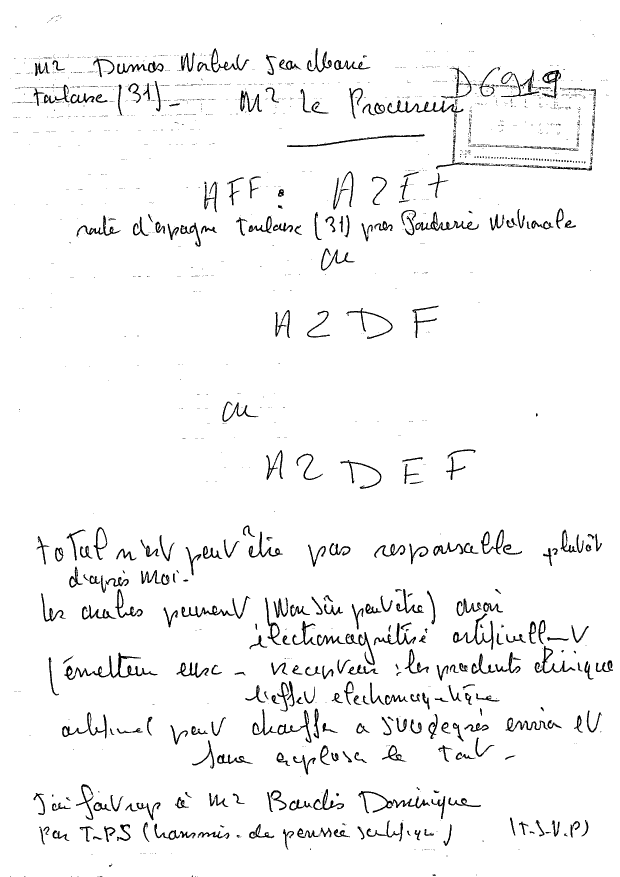 Mr Dumas Norbert Jean Marie
Toulouse (31) - Mr Le Procureur
D6919
AFF : AZET
route d'espagne Toulouse (31) près Poudrerie Nationale
ou
AZDF
ou
AZDEF
total n'est peut être pas responsable plutôt
d'après moi.
les arabes peuvent (Non sûr peut être) avoir
électromagnétisé artificiell-t
(émetteur - recepteur : les produits chimique
l'effet electromag-tique
artificiel peut chauffer a 500 degrés environ et
faire exploser le tout -
J'ai fait rap à Mr Baudis Dominique
Par T-P-S (transmis. de pensée scientifique) (T-S-V-P)